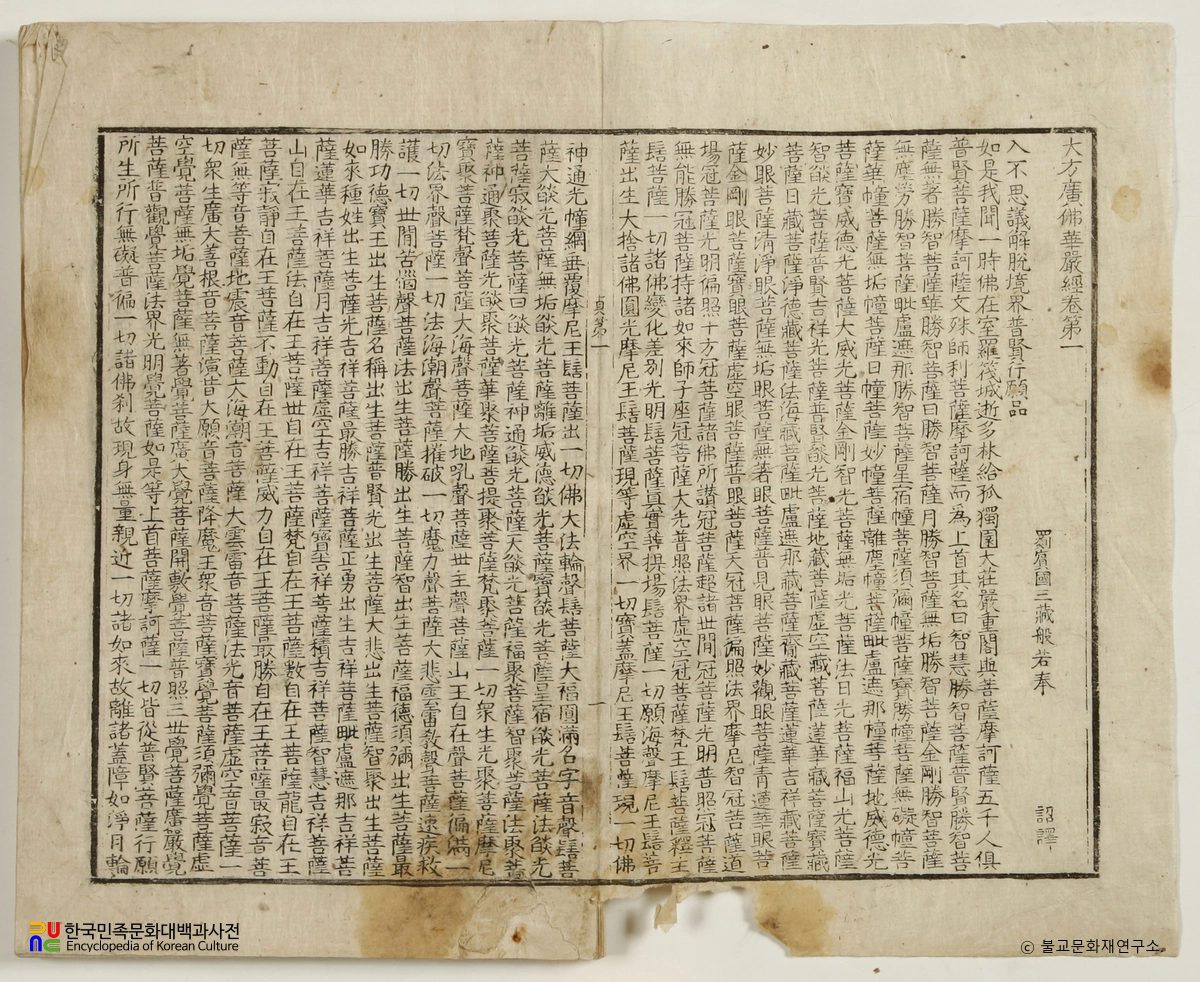 大方廣佛華嚴經卷第一
罽賓國三藏般若奉 詔譯
入不思議解脫境界普賢行願品
如是我聞一時佛在室羅筏城逝多林給孤獨園大莊嚴重閣與菩薩摩訶薩五千人俱
普賢菩薩摩訶薩文殊師利菩薩摩訶薩而為上首其名曰智慧勝智菩薩普賢勝智菩
薩無著勝智菩薩華勝智菩薩日勝智菩薩月勝智菩薩無垢勝智菩薩金剛勝智菩薩
無塵勞勝智菩薩毗盧遮那勝智菩薩星宿幢菩薩須彌幢菩薩寶勝幢菩薩無礙幢菩
薩華幢菩薩無垢幢菩薩日幢菩薩妙幢菩薩離塵幢菩薩毗盧遮那幢菩薩地威德光
菩薩寶威德光菩薩大威光菩薩金剛智光菩薩無垢光菩薩法日光菩薩福山光菩薩
智㷔光菩薩普賢吉祥光菩薩普賢㷔光菩薩地藏菩薩虛空藏菩薩蓮華藏菩薩寶藏
菩薩日藏菩薩淨德藏菩薩法海藏菩薩毗盧遮那藏菩薩齎藏菩薩蓮華吉祥藏菩薩
妙眼菩薩清淨眼菩薩無垢眼菩薩無著眼菩薩普見眼菩薩妙觀眼菩薩青蓮華眼菩
薩金剛眼菩薩寶眼菩薩虛空眼菩薩普眼菩薩天冠菩薩徧照法界摩尼智冠菩薩道
場冠菩薩光明徧照十方冠菩薩諸佛所讚冠菩薩超諸世間冠菩薩光明普照冠菩薩
無能勝冠菩薩持諸如來師子座冠菩薩大光普照法界虛空冠菩薩梵王髻菩薩釋主
髻菩薩一切諸佛變化差別光明髻菩薩眞實菩提場髻菩薩一切願海聲摩尼王髻菩
薩出生大捨諸佛圓光摩尼王髻菩薩現等虛空界一切寶蓋摩尼王髻菩薩現一切佛
貞第一 一
神通光幢網垂覆摩尼王髻菩薩出一切佛大法輪聲髻菩薩大福圓滿名字音聲髻菩
薩大㷔光菩薩無垢㷔光菩薩離垢威德㷔光菩薩寶㷔光菩薩星宿㷔光菩薩法㷔光
菩薩寂㷔光菩薩日㷔光菩薩神通㷔光菩薩天㷔光菩薩福聚菩薩智聚菩薩法聚菩
薩神通聚菩薩光㷔聚菩薩華聚菩薩菩提聚菩薩梵聚菩薩一切衆生光聚菩薩摩尼
寶聚菩薩梵聲菩薩大海聲菩薩大地吼聲菩薩世主聲菩薩山王自在聲菩薩徧滿一
切法界聲菩薩一切法海潮聲菩薩摧破一切魔力聲菩薩大悲雲雷敎聲菩薩速疾救
護一切世閒苦惱聲菩薩法出生菩薩勝出生菩薩智出生菩薩福德須彌出生菩薩最
勝功德寶王出生菩薩名稱出生菩薩普賢光出生菩薩大悲出生菩薩智聚出生菩薩
如來種姓出生菩薩光吉祥菩薩最勝吉祥菩薩正勇出生吉祥菩薩毗盧遮那吉祥菩
薩蓮華吉祥菩薩月吉祥菩薩虛空吉祥菩薩寶吉祥菩薩積吉祥菩薩智慧吉祥菩薩
山自在王菩薩法自在王菩薩世自在王菩薩梵自在王菩薩數自在王菩薩龍自在王
菩薩寂靜自在王菩薩不動自在王菩薩威力自在王菩薩最勝自在王菩薩最寂音菩
薩無等音菩薩地震音菩薩大海潮音菩薩大雲雷音菩薩法光音菩薩虛空音菩薩一
切衆生廣大善根音菩薩演昔大願音菩薩降魔王衆音菩薩寶覺菩薩須彌覺菩薩虛
空覺菩薩無垢覺菩薩無著覺菩薩廣大覺菩薩開敷覺菩薩普照三世覺菩薩廣嚴覺
菩薩普觀覺菩薩法界光明覺菩薩如是等上首菩薩摩訶薩一切皆從普賢菩薩行願
所生所行無礙普徧一切諸佛刹故現身無量親近一切諸如來故離諸蓋障如淨月輪
한국민족문화대백과사전
Encyclopedia of Korean Culture
© 불교문화재연구소